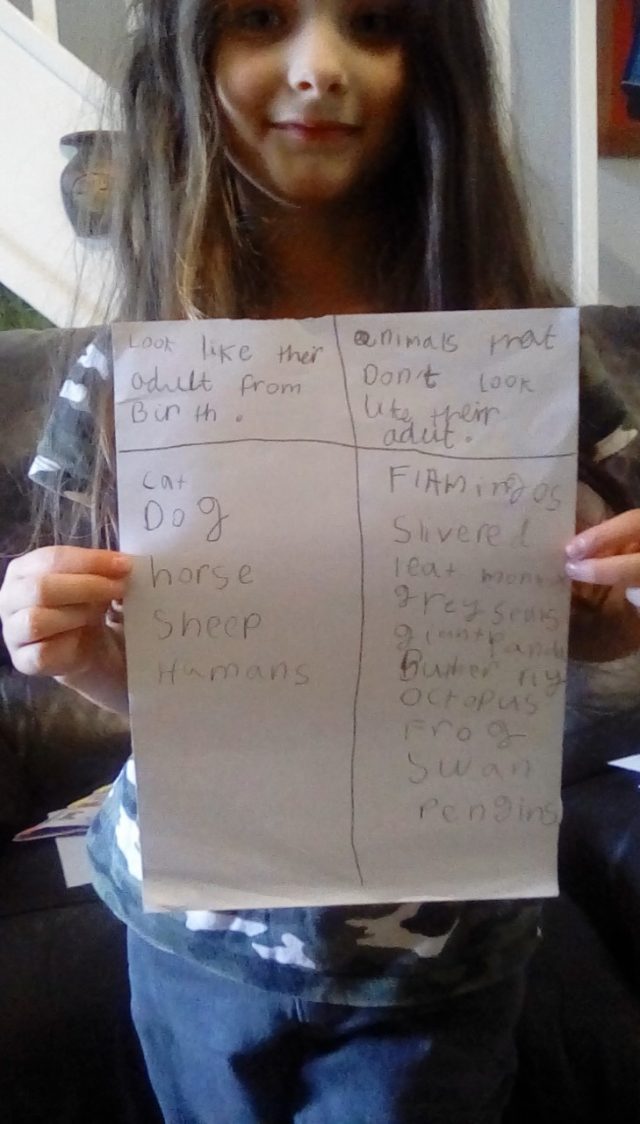 Look like ther
adult from
Birth.
animals that
Don't look
like their
adult.
cat
Dog
horse
Sheep
Humans
FlAmingos
Slivered
leaf
grey seals
giant
Butter fly
octopus
Frog
Swan
Pengins